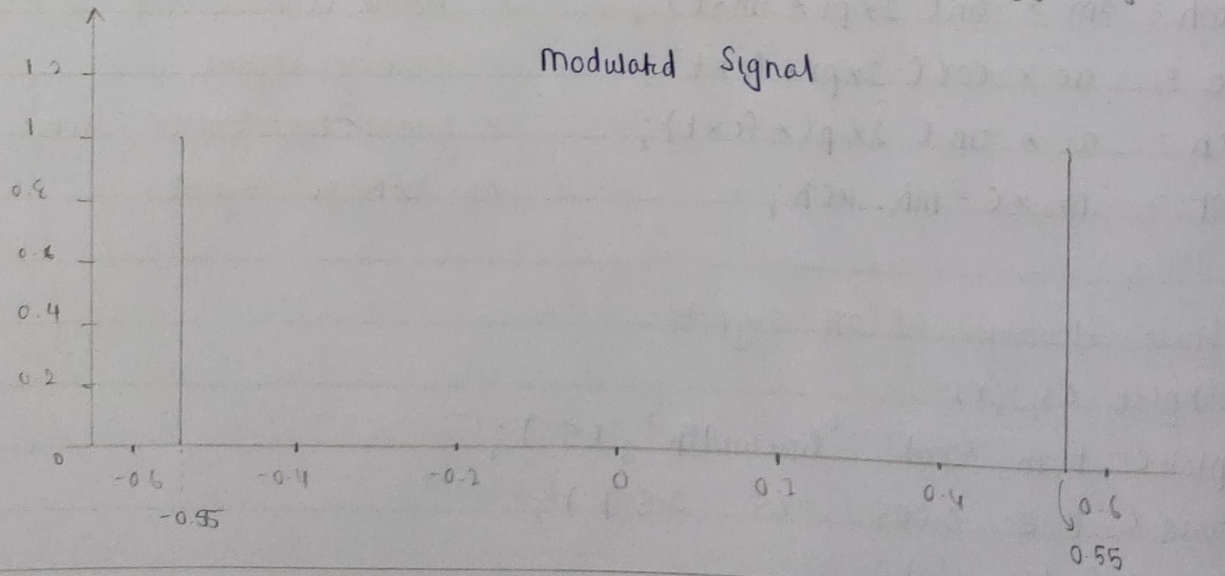 Modulatd Signal
1.2
1
0.8
0.6
0.4
0.2
0
-0.6 -0.4 -0.2 0 0.2 0.4 0.6
-0.55 0.55